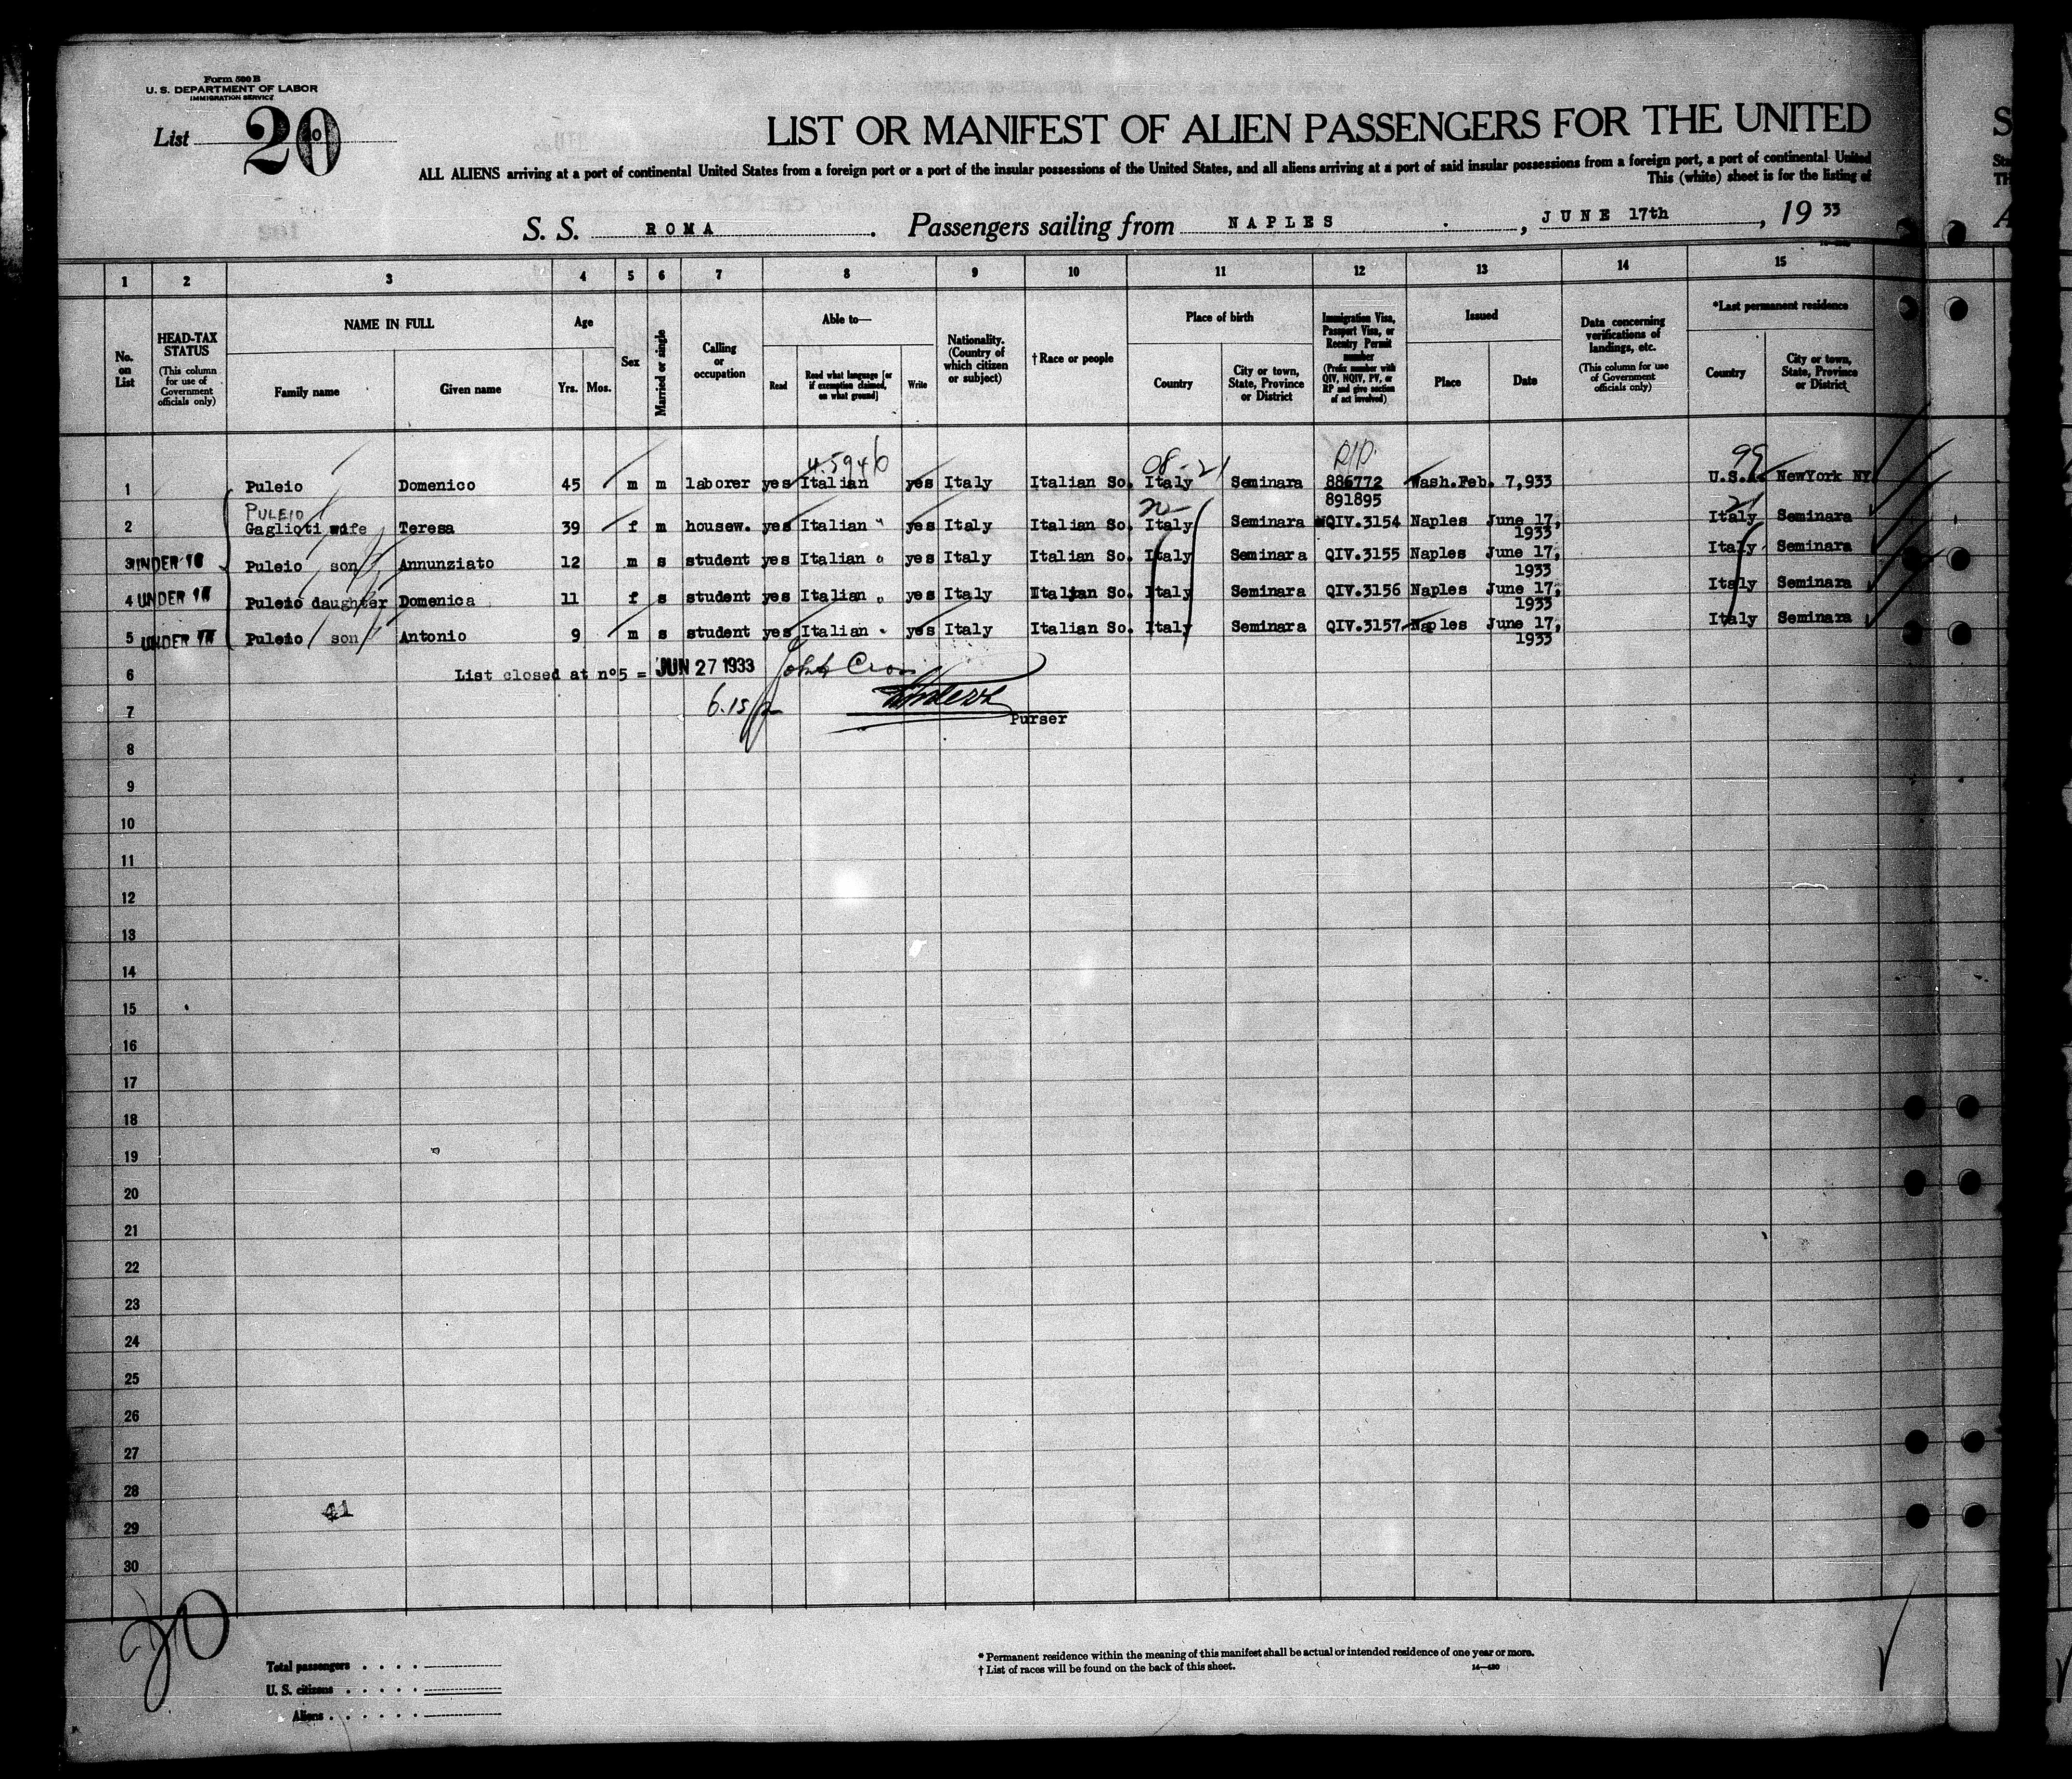 Form 500 B
U. S. DEPARTMENT OF LABOR
IMMIGRATION SERVICE
List 20
LIST OR MANIFEST OF ALIEN PASSENGERS FOR THE UNITED
ALL ALIENS arriving at a port of continental United States from a foreign port or a port of the insular possessions of the United States, and all aliens arriving at a port of said insular possessions from a foreign port, a port of continental United
This (white) sheet is for the listing of
S. S. ROMA. Passengers sailing from NAPLES, JUNE 17th, 19 33
1 2 3 4 5 6 7 8 9 10 11 12 13 14 15
No. on List
HEAD-TAX STATUS
(This column for use of Government officials only)
NAME IN FULL
Family name
Given name
Age
Yrs. Mos.
Sex
Married or single
Calling or occupation
Able to—
Read
Read what language [or if exemption claimed, on what ground]
Write
Nationality. (Country of which citizen or subject)
†Race or people
Place of birth
Country
City or town, State, Province or District
Immigration Visa, Passport Visa, or Reentry Permit number
(Prefix number with QIV, NQIV, PV, or RP and give section of act involved)
Issued
Place
Date
Data concerning verifications of landings, etc.
(This column for use of Government officials only)
*Last permanent residence
Country
City or town, State, Province or District
08-21 99
1 Puleio Domenico 45 m m laborer yes Italian yes Italy Italian So. Italy Seminara 886772 Wash. Feb. 7,933 U.S.A. NewYork NY
PULEIO 891895 21
2 Gaglioti wife Teresa 39 f m housew. yes Italian " yes Italy Italian So. Italy Seminara QIV.3154 Naples June 17, 1933 Italy Seminara
3 UNDER 16 Puleio son Annunziato 12 m s student yes Italian yes Italy Italian So. Italy Seminara QIV.3155 Naples June 17, 1933 Italy Seminara
4 UNDER 16 Puleio daughter Domenica 11 f s student yes Italian yes Italy Italian So. Italy Seminara QIV.3156 Naples June 17, 1933 Italy Seminara
5 UNDER 16 Puleio son Antonio 9 m s student yes Italian yes Italy Italian So. Italy Seminara QIV.3157 Naples June 17, 1933 Italy Seminara
6 List closed at nº5 = JUN 27 1933 John
7 6.15 p
Purser
8
9
10
11
12
13
14
15
16
17
18
19
20
21
22
23
24
25
26
27
28
41
29
30
20
Total passengers . . . .
U. S. citizens . . . . .
Aliens . . . . . .
* Permanent residence within the meaning of this manifest shall be actual or intended residence of one year or more.
† List of races will be found on the back of this sheet.
14—430